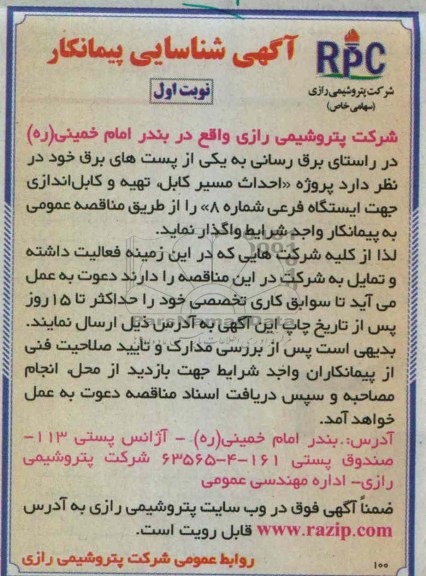 آگهی شناسایی پیمانکار
RPC
شرکت پتروشیمی رازی
(سهامی خاص)
نوبت اول
شرکت پتروشیمی رازی واقع در بندر امام خمینی(ره)
در راستای برق رسانی به یکی از پست های برق خود در
نظر دارد پروژه «احداث مسیر کابل، تهیه و کابل‌اندازی
جهت ایستگاه فرعی شماره ۸» را از طریق مناقصه عمومی
به پیمانکار واجد شرایط واگذار نماید.
لذا از کلیه شرکت هایی که در این زمینه فعالیت داشته
و تمایل به شرکت در این مناقصه را دارند دعوت به عمل
می آید تا سوابق کاری تخصصی خود را حداکثر تا ۱۵ روز
پس از تاریخ چاپ این آگهی به آدرس ذیل ارسال نمایند.
بدیهی است پس از بررسی مدارک و تأیید صلاحیت فنی
از پیمانکاران واجد شرایط جهت بازدید از محل، انجام
مصاحبه و سپس دریافت اسناد مناقصه دعوت به عمل
خواهد آمد.
آدرس: بندر امام خمینی(ره) - آژانس پستی ۱۱۳-
صندوق پستی ۱۶۱-۴-۶۳۵۶۵ شرکت پتروشیمی
رازی- اداره مهندسی عمومی
ضمناً آگهی فوق در وب سایت پتروشیمی رازی به آدرس
www.razip.com قابل رویت است.
روابط عمومی شرکت پتروشیمی رازی
۱۰۰